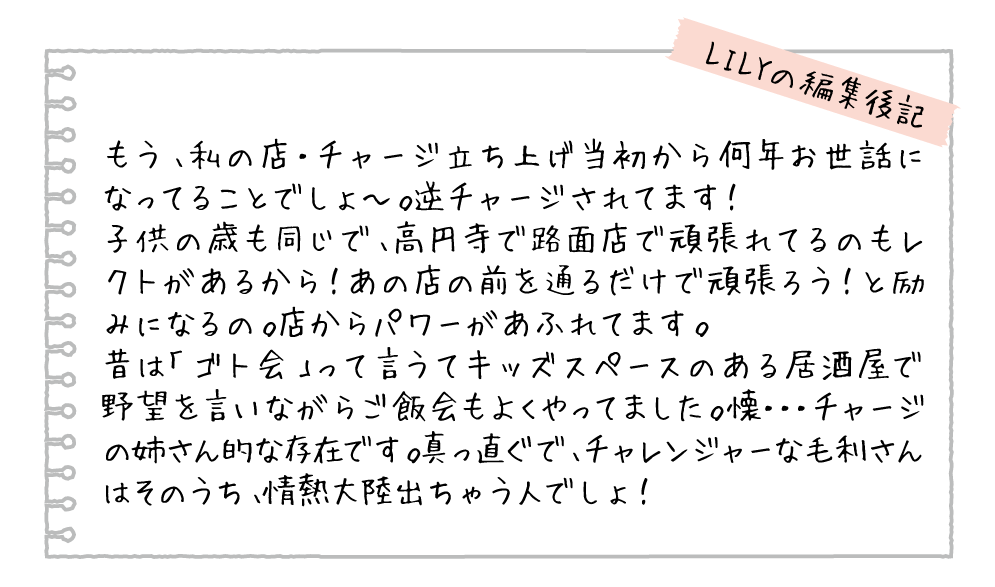 LILYの編集後記
もう、私の店・チャージ立ち上げ当初から何年お世話に
なってることでしょ〜。逆チャージされてます!
子供の歳も同じで、高円寺で路面店で頑張れてるのもレ
クトがあるから!あの店の前を通るだけで頑張ろう!と励
みになるの。店からパワーがあふれてます。
昔は「ゴト会」って言うてキッズスペースのある居酒屋で
野望を言いながらご飯会もよくやってました。懐・・・チャージ
の姉さん的な存在です。真っ直ぐで、チャレンジャーな毛利さん
はそのうち、情熱大陸出ちゃう人でしょ!